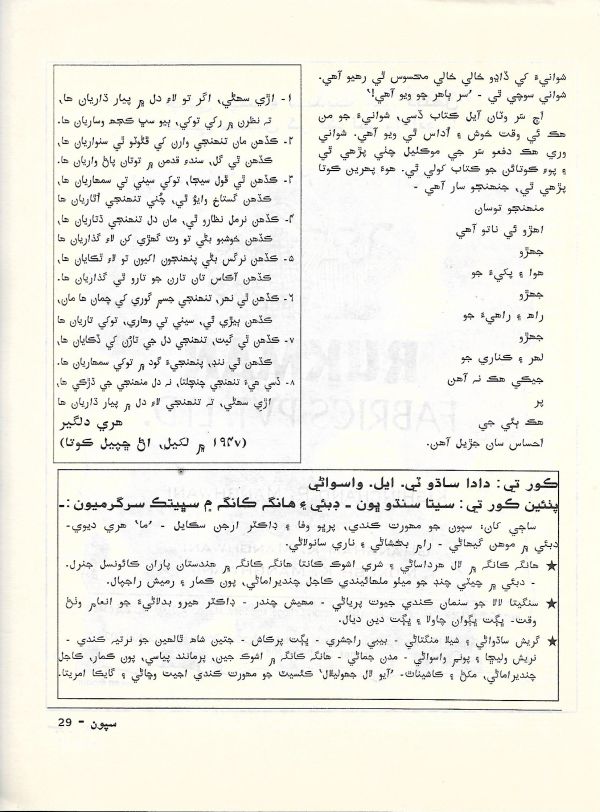 شوانيءَ کي ڏاڍو خالي خالي محسوس ٿي رهيو آهي.
شواني سوچي ٿي - 'سر ٻاهر چو ويو آهي!'
اڄ سَر وٽان آيل ڪتاب ڏسي، شوانيءَ جو من
هڪ ئي وقت خوش ۽ اُداس ٿي ويو آهي. شواني
وري هڪ دفعو سَر جي موڪليل چٺي پڙهي ٿي
۽ پوءِ ڪوتائن جو ڪتاب کولي ٿي. هوءَ پهرين ڪوتا
پڙهي ٿي، جنهنجو سار آهي -
منهنجو توسان
اهڙو ئي ناتو آهي
جهڙو
هوا ۽ پکيءَ جو
جهڙو
راھ ۽ راهيءَ جو
جهڙو
لهر ۽ ڪناري جو
جيڪي هڪ نہ آهن
پر
هڪ ٻئي جي
احساس سان جڙيل آهن.
۱- اڙي سهڻي، اگر تو لاءِ دل ۾ پيار ڌاريان ها،
تہ نظرن ۾ رکي توکي، ٻيو سڀ ڪجھ وساريان ها.
۲- ڪڏهن مان تنهنجي وارن کي ڦڻوٽو ٿي سنواريان ها،
ڪڏهن ٿي گل، سندءِ قدمن ۾ توتان پاڻ واريان ها.
۳- ڪڏهن ٿي ڦول سيڄا، توکي سيني تي سمهاريان ها،
ڪڏهن گستاخ وايُو ٿي، چُني تنهنجي اُٿاريان ها
۴- ڪڏهن نرمل نظارو ٿي، مان دل تنهنجي ڌتاريان ها،
ڪڏهن خوشبو بڻي تو وٽ گهڙي کن لاءِ گذاريان ها.
۵- ڪڏهن نرگس بڻي پنهنجون اکيون تو لاءِ ٿڪايان ها،
ڪڏهن آڪاس تان تارن جو تارو ٿي گذاريان ها.
۶- ڪڏهن ٿي نهر، تنهنجي جسمِ گوري کي چمان ها مان،
ڪڏهن ٻيڙي ٿي، سيني تي وهاري، توکي تاريان ها
۷- ڪڏهن ٿي گيت، تنهنجي دل جي تاڙن کي ڌڪايان ها،
ڪڏهن ٿي ننڊ، پنهنجيءَ گود ۾ توکي سمهاريان ها.
۸- ڏسي هيءَ تنهنجي چنچلتا، نہ دل منهنجي جي ڌڙڪي ها،
اڙي سهڻي، تہ تنهنجي لاءِ دل ۾ پيار ڌاريان ها
هري دلگير
(۱۹۴۷ ۾ لکيل، اڻ ڇپيل ڪوتا)
ڪور تي: دادا ساڌو ٽي. ايل. واسواڻي
پٺئين ڪور تي: سيتا سنڌو ڀون - دبئي ۽ هانگہ ڪانگہ ۾ سڀيتڪ سرگرميون :-
ساڄي کان: سپون جو مهورت ڪندي، پرڀو وفا ۽ ڊاڪٽر ارجن سڪايل - 'ما' هري ديوي-
دبئي ۾ موهن گيهاڻي - رام بخشاڻي ۽ ناري سانولاڻي.
★ هانگہ ڪانگہ ۾ لال هرداساڻي ۽ شري اشوڪ کانتا هانگہ ڪانگہ ۾ هندستان پاران ڪائونسل جنرل.
- دبئي ۾ چيٽي چنڊ جو ميلو ملهائيندي کاجل چنديراماڻي، پون ڪمار ۽ رميش راجپال.
★ سنگيتا لالا جو سنمان ڪندي جيوت پرياڻي - مهيش چندر - ڊاڪٽر هيرو بدلاڻيءَ جو انعام وٺڻ
وقت- ڀڳت ڀڳوان چاولا ۽ ڀڳت دين ديال.
★ گريش ساڌواڻي ۽ شيلا منگتاڻي - بيبي راجشري - ڀڳت پرڪاش - جتين شاھ ٿالهين جو نرتيہ ڪندي -
نريش وليچا ۽ پونم واسواڻي - مدن جماڻي - هانگہ ڪانگہ ۾ اشوڪ جين، پرمانند پياسي، پون ڪمار، کاجل
چنديراماڻي، مکڻ ۽ ڪاشيناٿ- 'آيو لال جهوليلال' ڪئسيٽ جو مهورت ڪندي اجيت وڇاڻي ۽ گايڪا امريتا.
سپون - 29